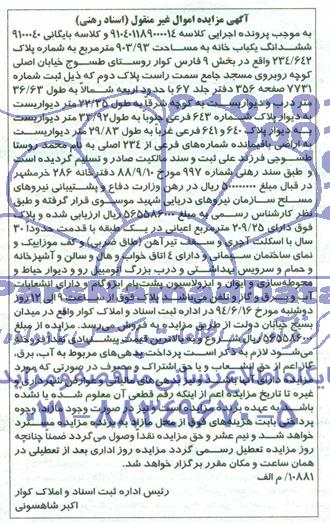 آگهی مزایده اموال غیر منقول (اسناد رهنی)
به موجب پرونده اجرایی کلاسه ۹۱۰۴۰۱۱۸۹۰۰۰۰۱۴ و کلاسه بایگانی ۹۱۰۰۰۴۰
ششدانگ یکباب خانه به مساحت ۹۰۳/۹۳ مترمربع به شماره پلاک
۲۳۴/۶۴۲ واقع در بخش ۹ فارس کوار روستای طسوج خیابان اصلی
کوچه روبروی مسجد جامع سمت راست پلاک دوم که ذیل ثبت شماره
۷۷۳۱ صفحه ۳۵۶ دفتر جلد ۶۷ با حدود اربعه شمالاً به طول ۳۶/۶۳
متر درب و دیواریست به کوچه شرقاً به طول ۲۲/۳۵ متر دیواریست
به دیوار پلاک شماره ۶۴۳ فرعی جنوباً به طول ۳۲/۹۲ متر دیواریست
به دیوار پلاک ۶۴۰ و ۶۴۱ فرعی غرباً به طول ۲۹/۸۳ متر دیواریست
به اراضی باقیمانده شماره‌های فرعی از ۲۳۴ اصلی به نام محمد روستا
طسوجی فرزند علی ثبت و سند مالکیت صادر و تسلیم گردیده است
که طبق سند رهنی شماره ۹۹۷ مورخ ۸۸/۹/۱۰ دفترخانه ۲۸۶ خرمشهر
در قبال مبلغ ریال در رهن وزارت دفاع و پشتیبانی نیروهای
مسلح سازمان نیروهای دریایی شهید موسوی قرار گرفته و طبق
نظر کارشناس رسمی به مبلغ ریال ارزیابی شده و پلاک
فوق دارای ۲۰۹/۲۵ مترمربع اعیانی در یک طبقه با قدمت حدوداً ۳۰
سال با اسکلت آجری و سقف تیرآهن (طاق ضربی) و کف موزاییک و
نمای ساختمان سیمانی و دارای ۴ اتاق خواب و هال و سالن و آشپزخانه
و حمام و سرویس بهداشتی و درب بزرگ اتومبیل رو و دیوار حیاط و
محوطه‌سازی و ایوان و ایزولاسیون پشت‌بام ایزوگام و دارای انشعابات
آب و برق و گاز و تلفن می‌باشد پلاک فوق از ساعت ۹ الی ۱۲ روز
دوشنبه مورخ ۹۴/۶/۱۶ در اداره ثبت اسناد و املاک کوار واقع در میدان
بسیج خیابان دولت از طریق مزایده به فروش می‌رسد. مزایده از مبلغ
ریال شروع و به بالاترین قیمت پیشنهادی نقداً فروخته
می‌شود لازم به ذکر است پرداخت بدهی‌های مربوط به آب، برق،
گاز اعم از حق انشعاب و یا حق اشتراک و مصرف در صورتی که مورد
مزایده دارای آنها باشد و نیز بدهی‌های مالیاتی و عوارض شهرداری و
غیره تا تاریخ مزایده اعم از اینکه رقم قطعی آن معلوم شده یا نشده
باشد به عهده برنده مزایده است و نیز در صورت وجود مازاد، وجوه
پرداختی بابت هزینه‌های فوق از محل مازاد به برنده مزایده مسترد
خواهد شد و نیم عشر و حق مزایده نقداً وصول می‌گردد ضمناً چنانچه
روز مزایده تعطیل رسمی گردد مزایده روز اداری بعد از تعطیلی در
همان ساعت و مکان مقرر برگزار خواهد شد.
۱۰۸۸۱/م الف
رئیس اداره ثبت اسناد و املاک کوار
اکبر شاهسونی
۰۲۱-۸۸۳۴۹۶۷۰-۵